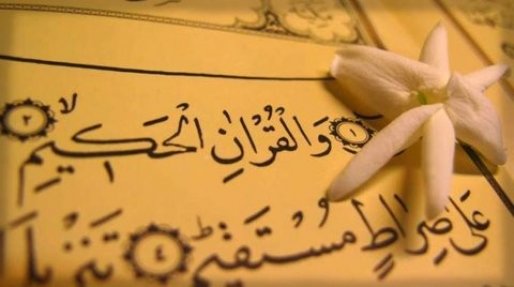 ۝١ وَالْقُرْاٰنِ الْحَكِيْمِ ۙ۝٢
عَلٰى صِرَاطٍ مُّسْتَقِيْمٍ ۝٤ تَنْزِيْلَ